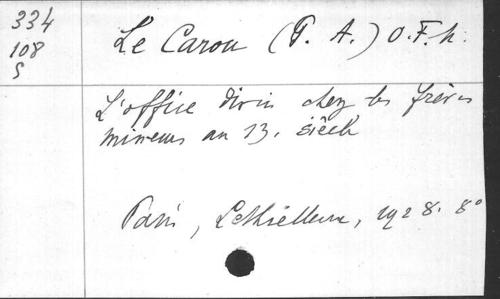 334
108
S
Le Carou (P. A.) O.F.M.
L'office divin chez les frères
mineurs au 13. siècle
Paris, Lethielleux, 1928. 8°